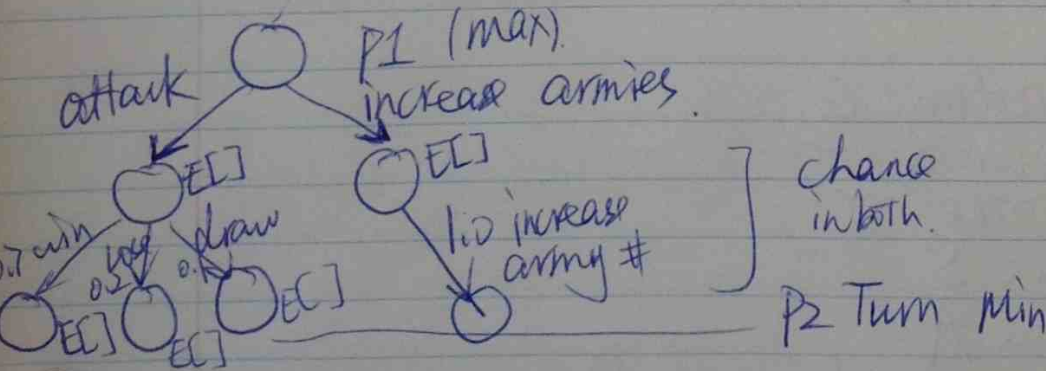 P1 (max).
attack
increase armies.
E[]
E[]
chance
in both.
0.7 win
0.2
draw
0.1
1.0 increase
army #
E[]
E[]
E[]
P2 Turn Min